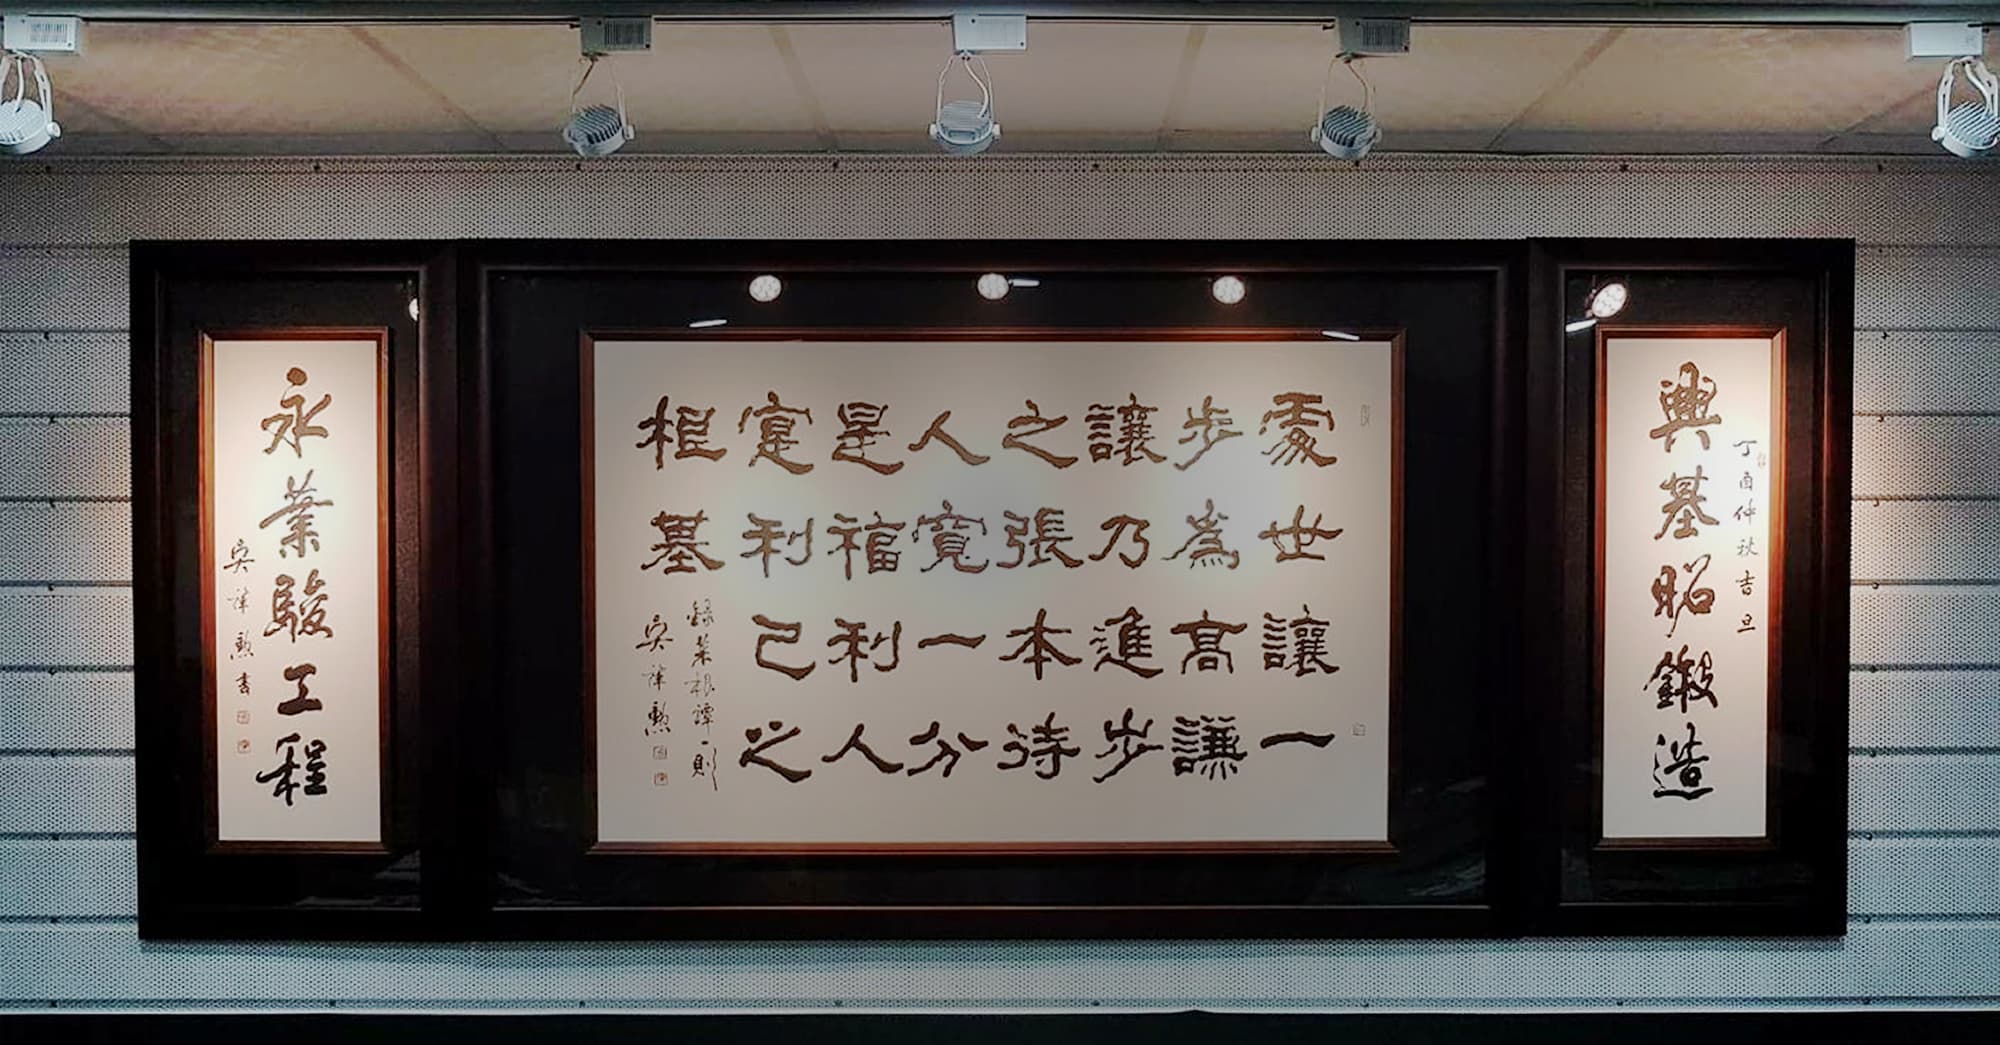 丁酉仲秋吉旦
興基昭鍛造
處世讓一
步為高謙
讓乃進步
之張本待
人寬一分
是福利人
寔利己之
根基
錄菜根譚一則
吳勳
永業駿工程
吳勳書